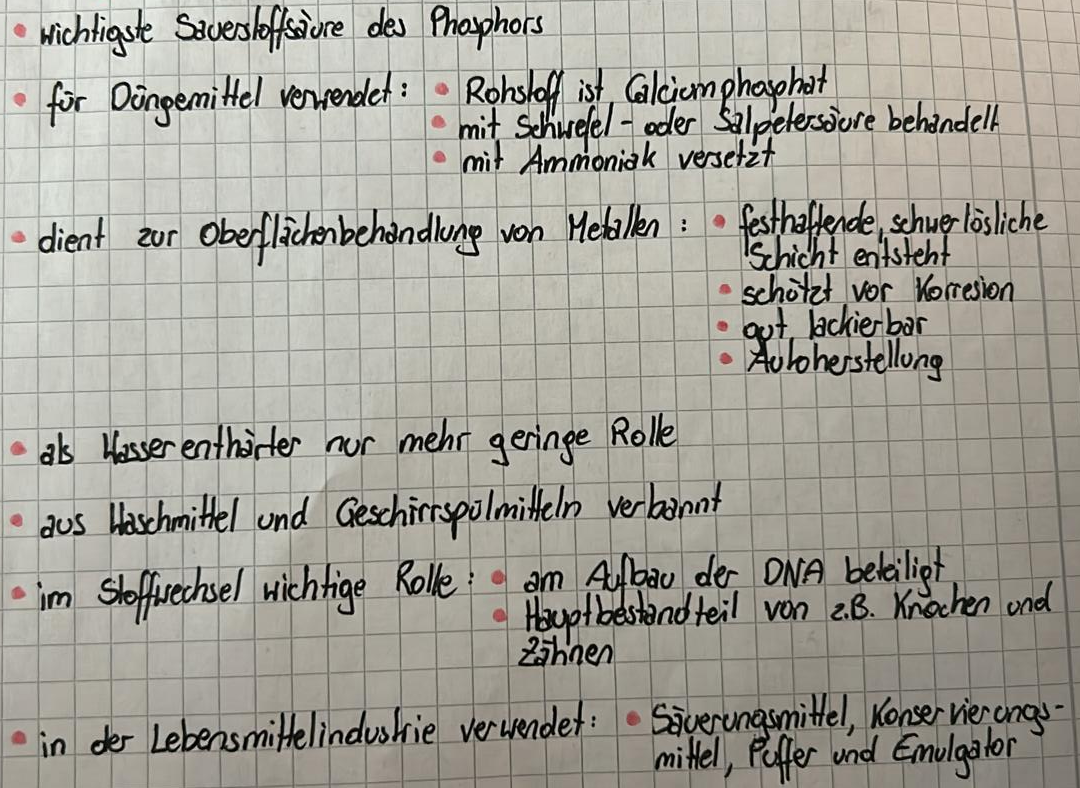 • wichtigste Sauerstoffsäure des Phosphors
• für Düngemittel verwendet: • Rohstoff ist Calciumphosphat
• mit Schwefel- oder Salpetersäure behandelt
• mit Ammoniak versetzt
• dient zur Oberflächenbehandlung von Metallen: • festhaftende, schwerlösliche
Schicht entsteht
• schützt vor Korresion
• gut lackierbar
• Autoherstellung
• als Wasserenthärter nur mehr geringe Rolle
• aus Waschmittel und Geschirrspülmitteln verbannt
• im Stoffwechsel wichtige Rolle: • am Aufbau der DNA beteiligt
• Hauptbestandteil von z.B. Knochen und
Zähnen
• in der Lebensmittelindustrie verwendet: • Säuerungsmittel, Konservierungs-
mittel, Puffer und Emulgator